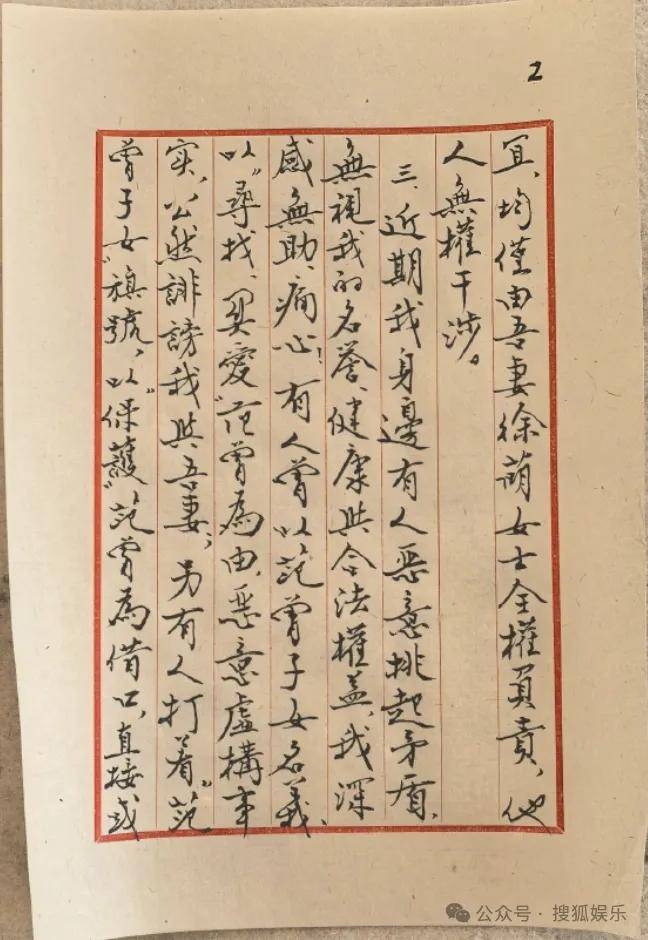 2
宜，均僅由吾妻徐萌女士全權負責，他
人無權干涉。
三、近期我身邊有人惡意挑起矛盾，
無視我的名譽、健康與合法權益，我深
感無助、痛心！有人曾以范曾子女名義、
以“尋找、關愛”范曾為由，惡意虛構事
实，公然誹謗我與吾妻；另有人打着“范
曾子女”旗號，以“保護”范曾為借口，直接或
公众号·搜狐娱乐